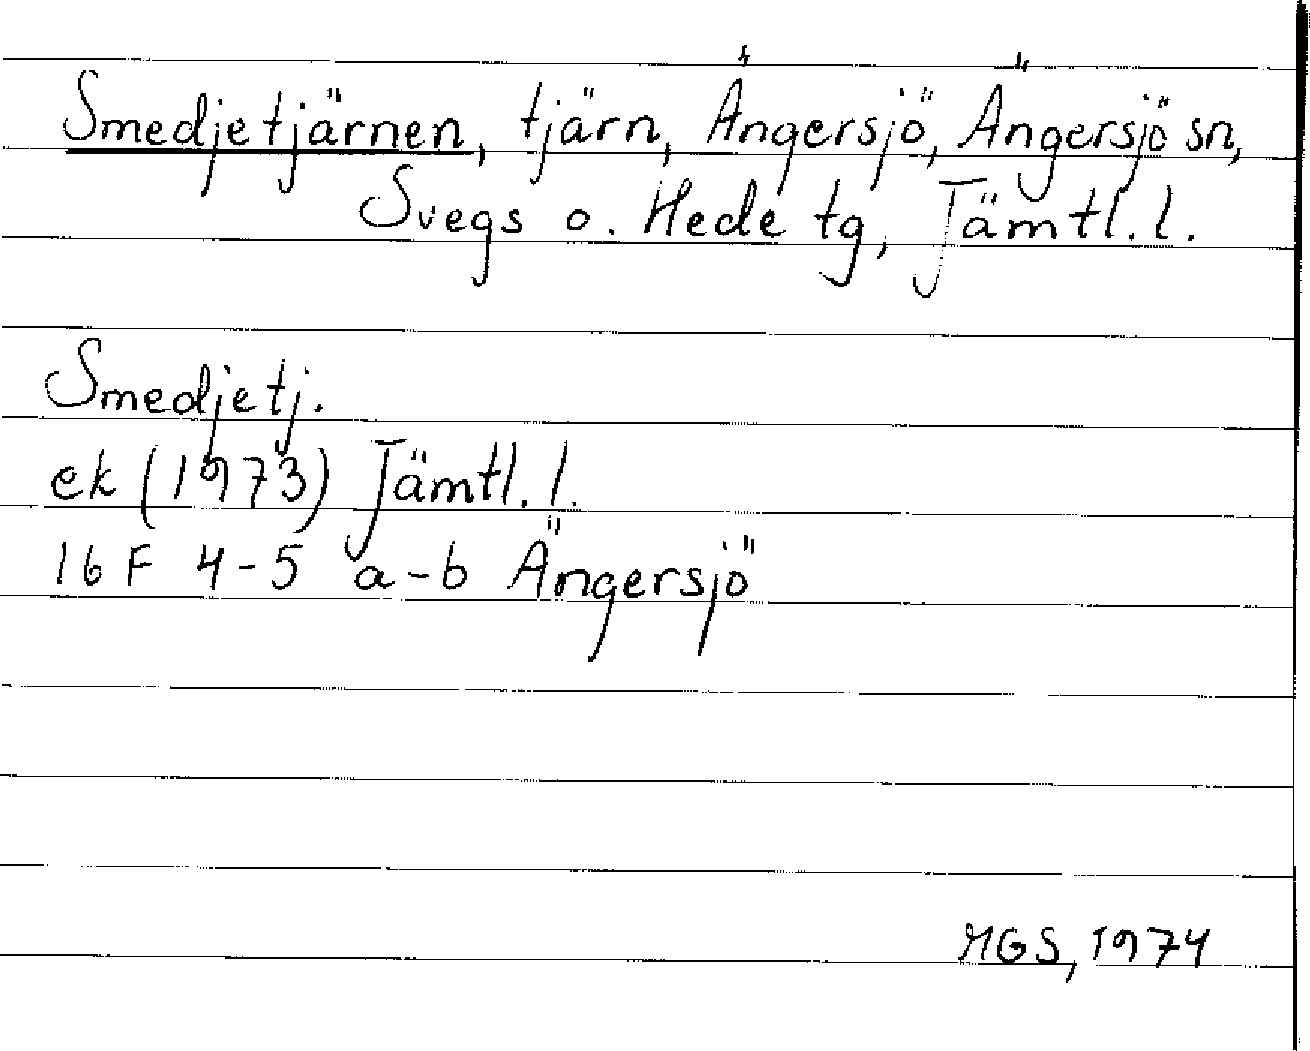 Smedjetjärnen, tjärn, Ängersjö, Ängersjö sn,
Svegs o. Hede tg, Jämtl. l.
Smedjetj.
ek (1973) Jämtl. l.
16F 4-5 a-b Ängersjö
MGS, 1974